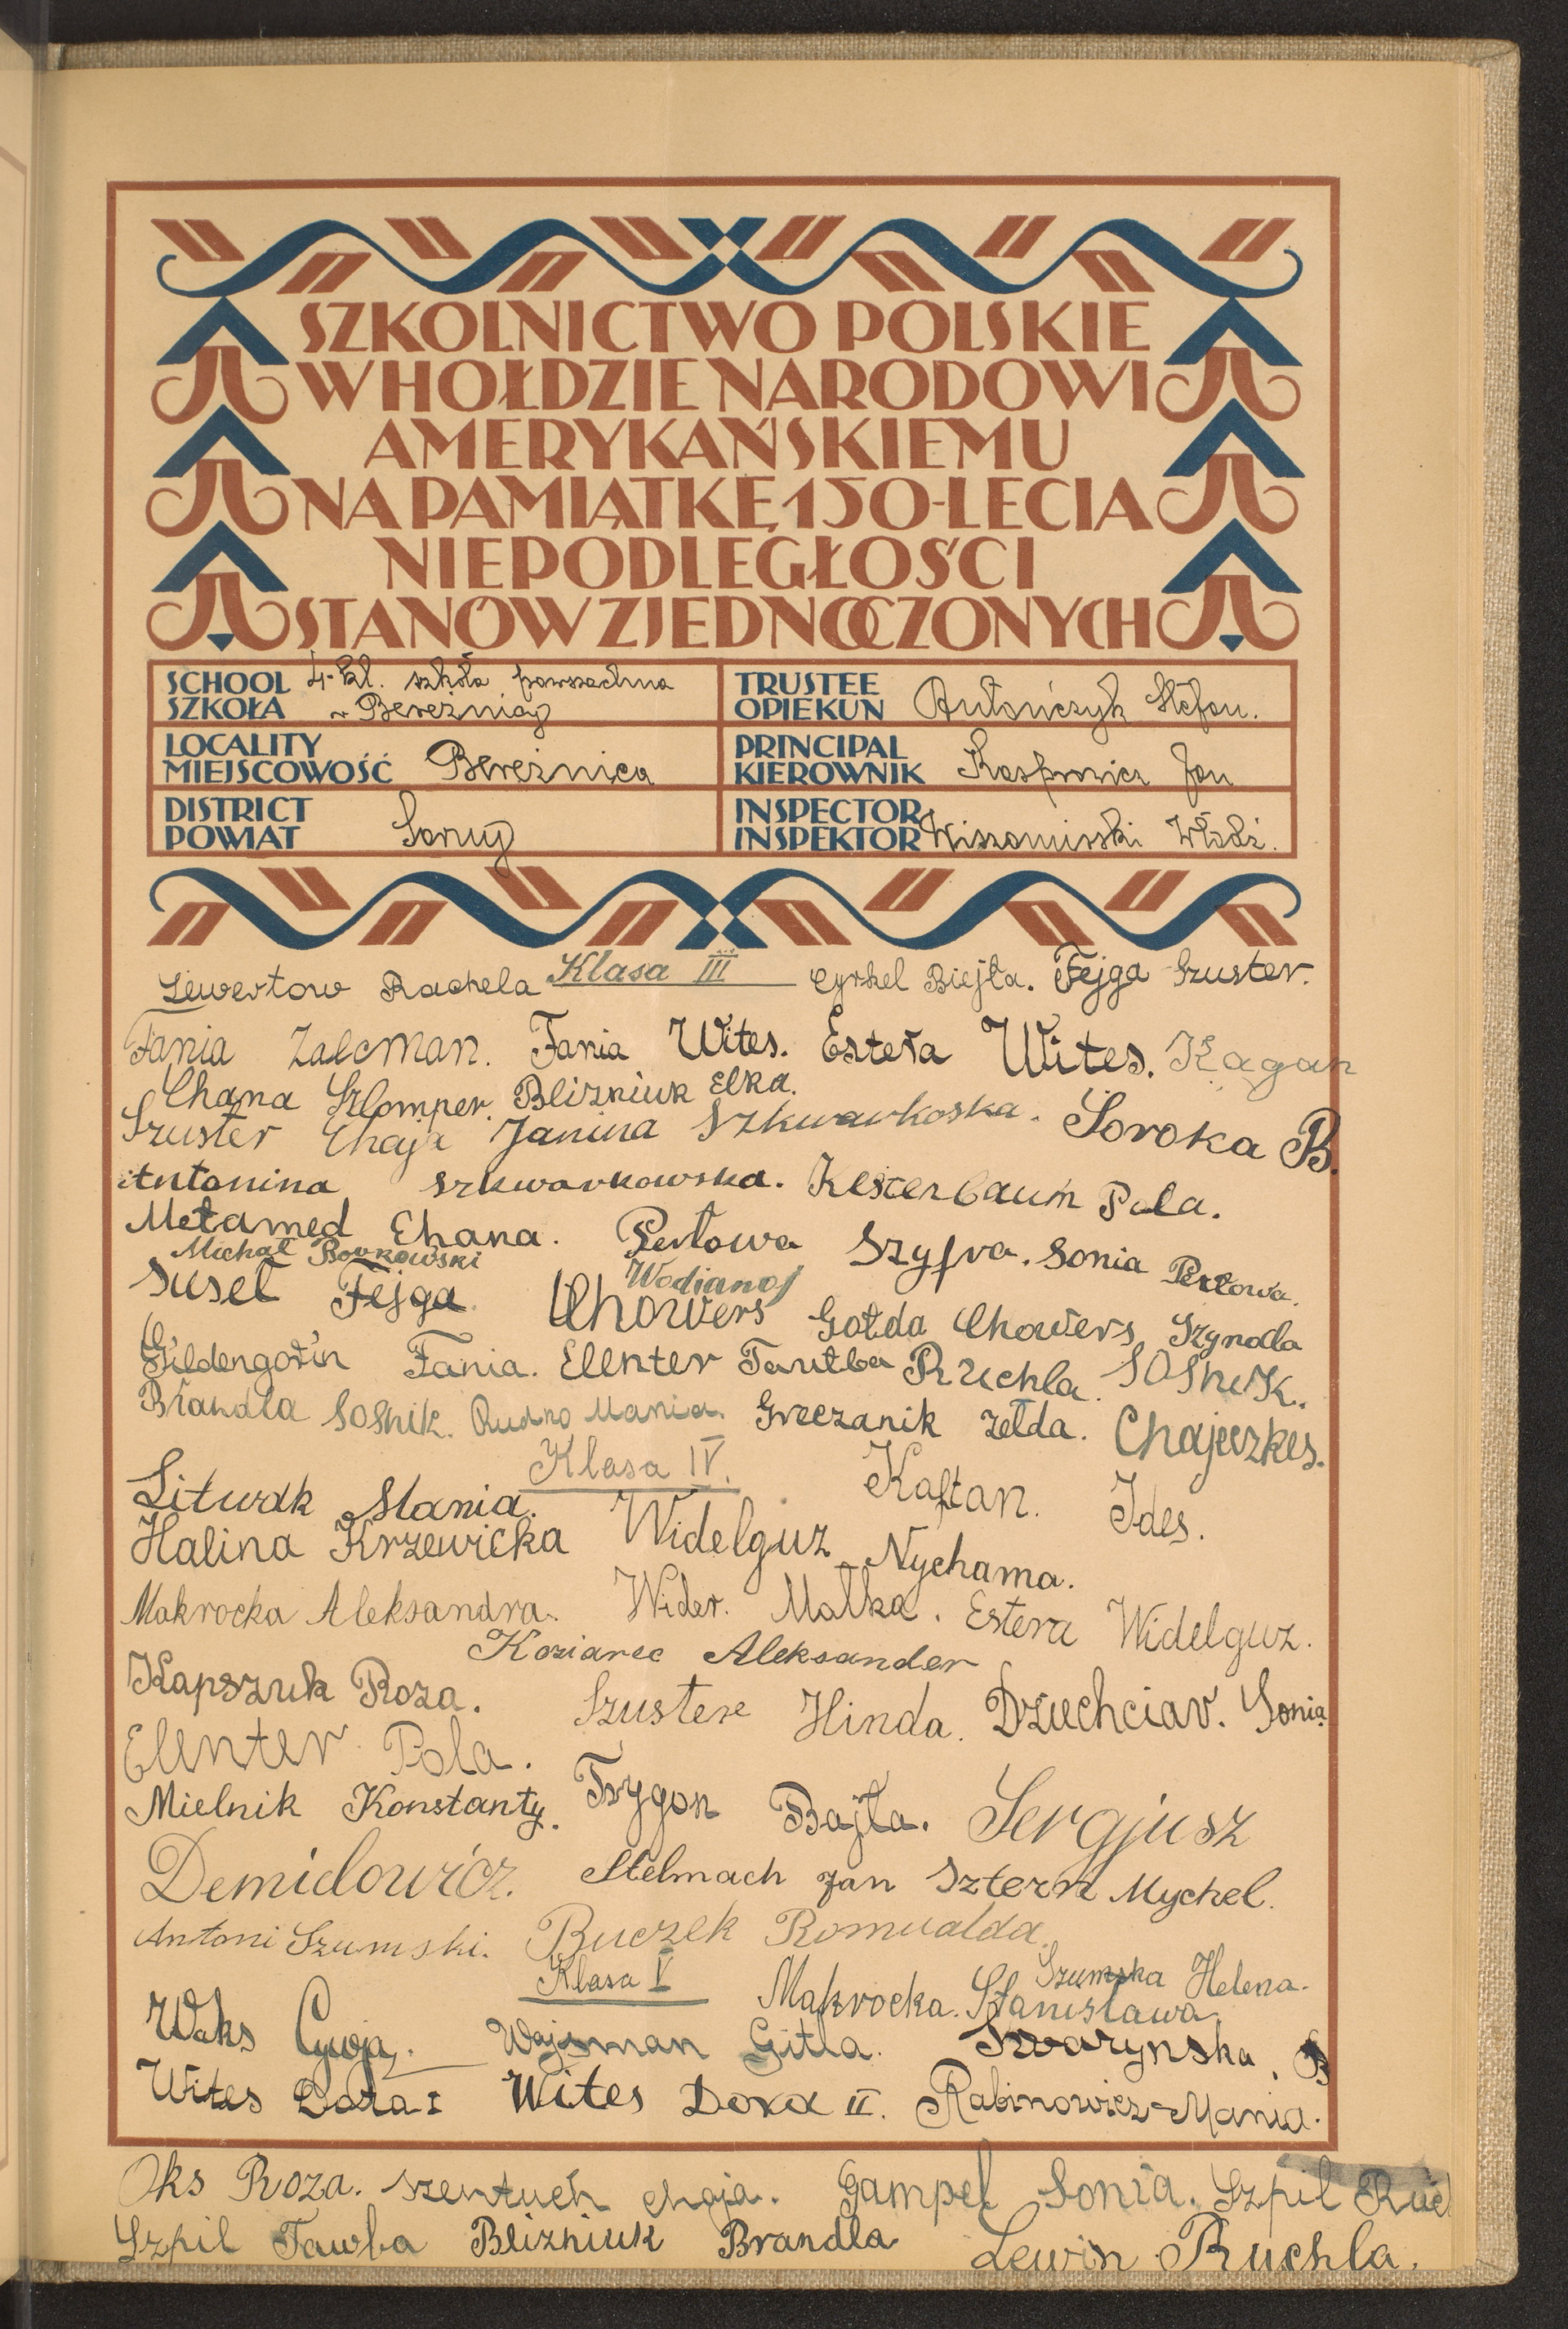 SZKOLNICTWO POLSKIE
W HOŁDZIE NARODOWI
AMERYKAŃSKIEMU
NA PAMIĄTKĘ 150-LECIA
NIEPODLEGŁOŚCI
STANÓW ZJEDNOCZONYCH
SCHOOL SZKOŁA 4-kl. szkoła powszechna w Bereźnicy
TRUSTEE OPIEKUN Antończyk Stefan.
LOCALITY MIEJSCOWOŚĆ Bereźnica
PRINCIPAL KIEROWNIK Kasprowicz Jan
DISTRICT POWIAT Sarny
INSPECTOR INSPEKTOR Wiszomirski Włodz.
Klasa III
Lewertow Rachela Cyrkel Biejła. Fejga Szuster.
Fania Zalcman. Fania Wites. Estera Wites. Kagan
Chana Szlomper. Blizniuk Elka.
Szuster Chaja Janina Szkwarkoska. Soroka B.
Antonina Szkwarkowska. Kesterbaum Pola.
Metamed Chana. Perłowa Szyfra. Sonia Perłowa.
Michał Borkowski Wodianoj
Susel Fejga. Chowers Gołda Chowers Szyndla
Gildengorin Fania. Elenter Taubba Ruchla. Sosnik.
Brandla Sosnik. Rudno Mania. Greczanik Zełda. Chajeczkes.
Klasa IV.
Liturak Mania. Kaftan. Ides.
Halina Krzewicka Widelguz Nychama.
Makrocka Aleksandra. Wider. Małka. Estera Widelguz.
Koziarec Aleksander
Kapszuk Roza. Szuster Hinda. Dziechciar. Sonia
Elenter Pola.
Mielnik Konstanty. Trygon Bajła. Sergjusz
Demidowicz. Stelmach Jan Sztern Mychel.
Antoni Szumski. Buczek Romualda.
Klasa V
Makrocka. Stanisława. Szumska Helena.
Waks Cywja. Wajsman Gitla. Skwarynska. B
Wites Dora I Wites Dora II. Rabinowicz Mania.
Oks Roza. Szentuch Chaja. Gampel Sonia. Szpil Ruc
Szpil Tawba Blizniuk Brandla Lewin Ruchla.